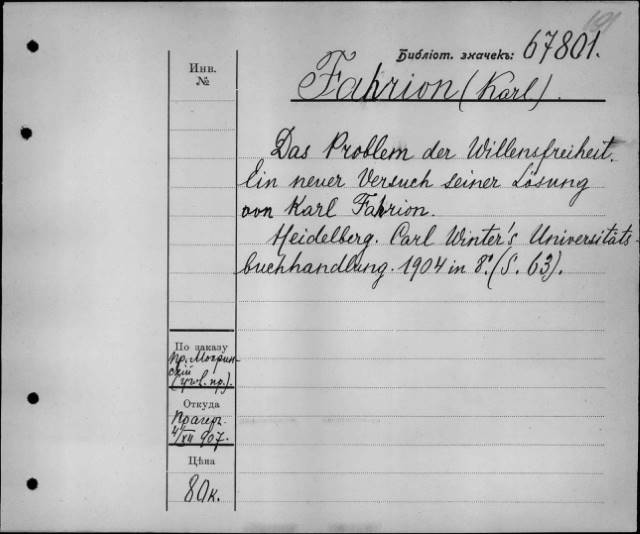 191
Библіот. значекъ: 67801.
Инв.
№
Fahrion (Karl).
Das Problem der Willensfreiheit.
Ein neuer Versuch seiner Lösung
von Karl Fahrion.
Heidelberg. Carl Winter's Universitäts
buchhandlung. 1904 in 8º. (S. 63).
По заказу
пр. Могилян-
скій
Откуда
Прагеръ.
4/XII 907.
Цѣна
80 к.